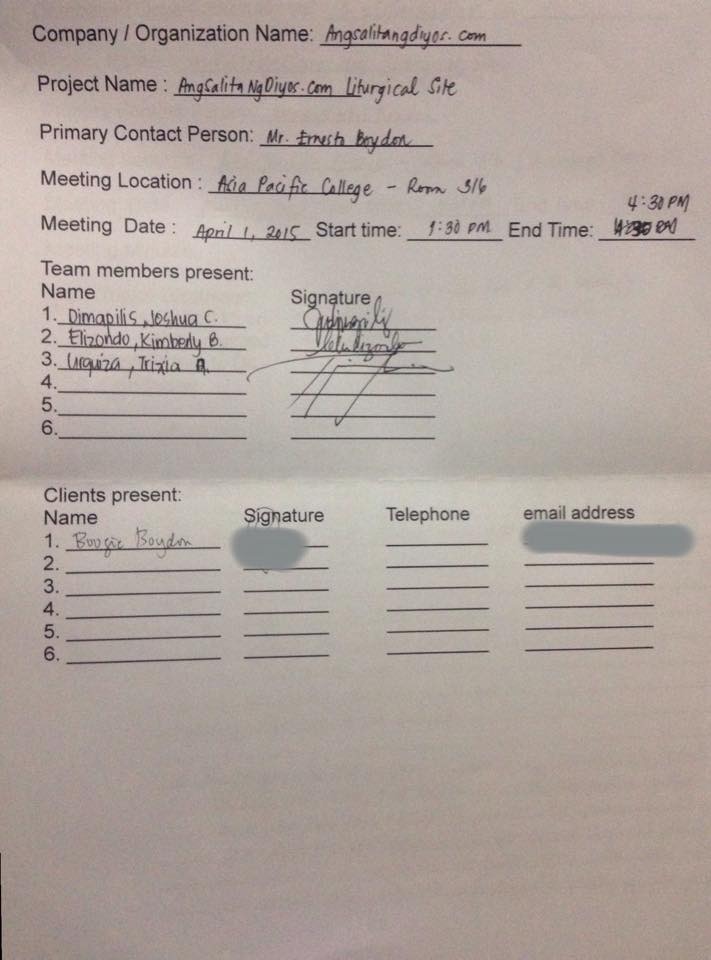 Company / Organization Name: Angsalitangdiyos.com
Project Name : AngSalitaNgDiyos.Com Liturgical Site
Primary Contact Person: Mr. Ernesto Boydon
Meeting Location : Asia Pacific College - Room 316
4:30 PM
Meeting Date : April 1, 2015 Start time: 1:30 PM End Time:
Team members present:
Name Signature
1. Dimapilis, Joshua C.
2. Elizondo, Kimberly B.
3. Urquiza, Trixia A.
4.
5.
6.
Clients present:
Name Signature Telephone email address
1. Boogie Boydon
2.
3.
4.
5.
6.